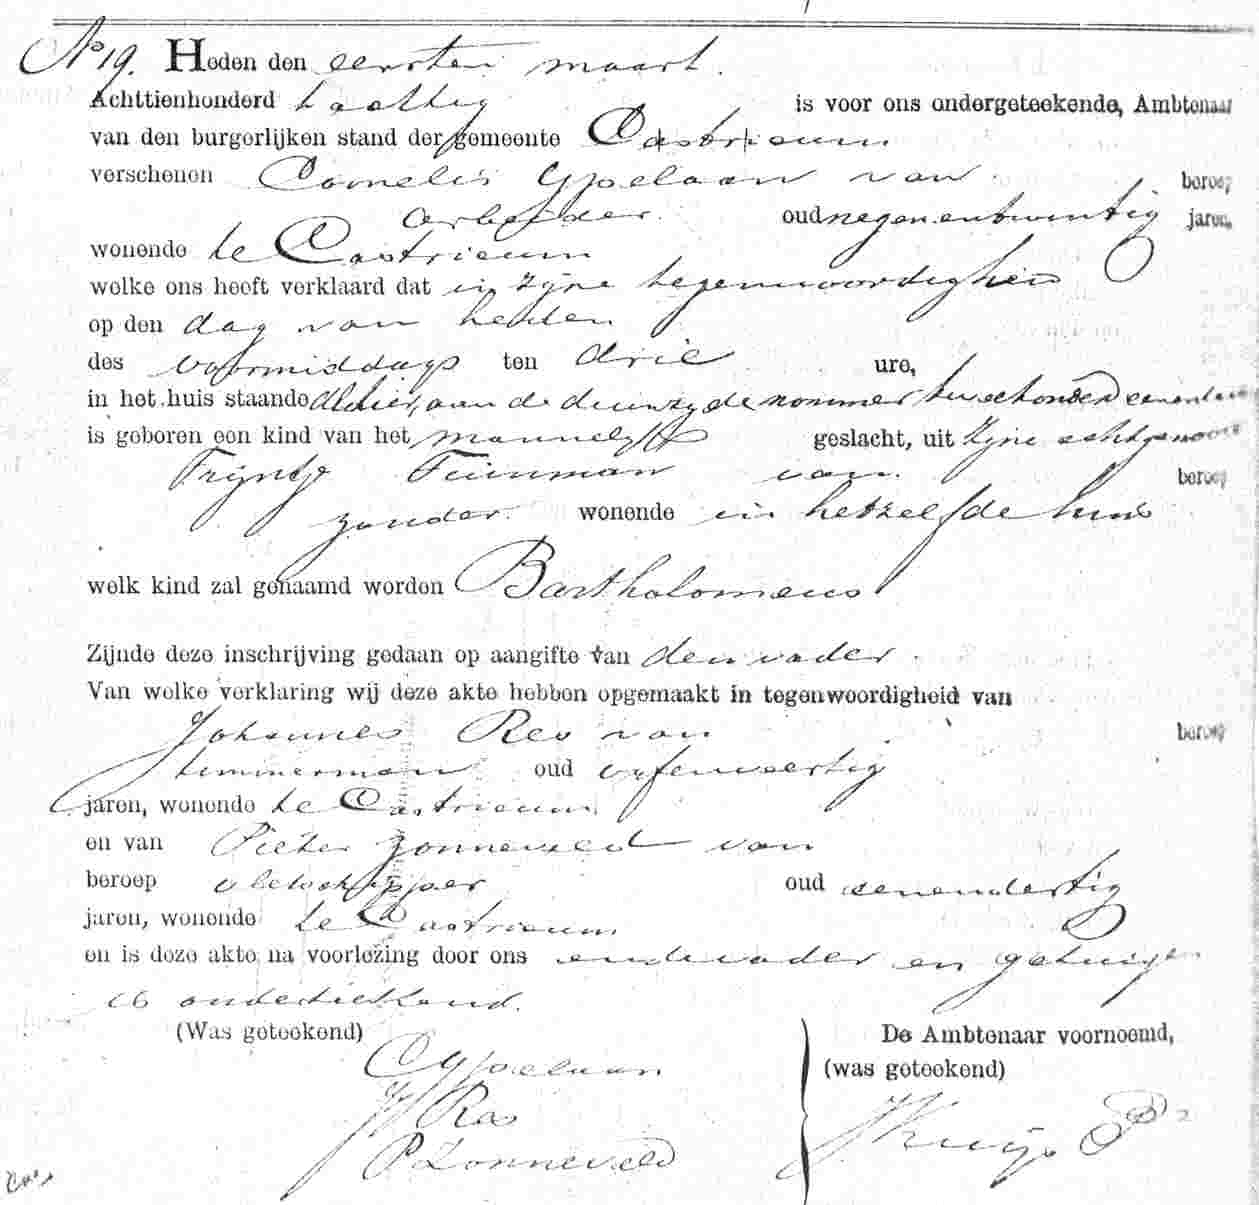 No 19. Heden den eersten maart.
Achttienhonderd tachtig is voor ons ondergeteekende, Ambtenaar
van den burgerlijken stand der gemeente Castricum
verschenen Cornelis Ypelaan van beroep
arbeider. oud negenentwintig jaren,
wonende te Castricum
welke ons heeft verklaard dat in zijne tegenwoordigheid
op den dag van heden
des voormiddags ten drie ure,
in het huis staande alhier, aan de duinzyde nommer tweehonderd
is geboren een kind van het mannelyk geslacht, uit zijne echtgenoote
Trijntje Tuinman van beroep
zonder wonende in hetzelfde huis
welk kind zal genaamd worden Bartholomeus
Zijnde deze inschrijving gedaan op aangifte van den vader.
Van welke verklaring wij deze akte hebben opgemaakt in tegenwoordigheid van
Johannes Res van beroep
timmerman oud vyfenveertig
jaren, wonende te Castricum
en van Pieter Zonneveld van
beroep oud eenendertig
jaren, wonende te Castricum
en is deze akte na voorlezing door ons vader en getuigen
onderteekend.
(Was geteekend) De Ambtenaar voornoemd,
C Ypelaan (was geteekend)
J Res
P Zonneveld